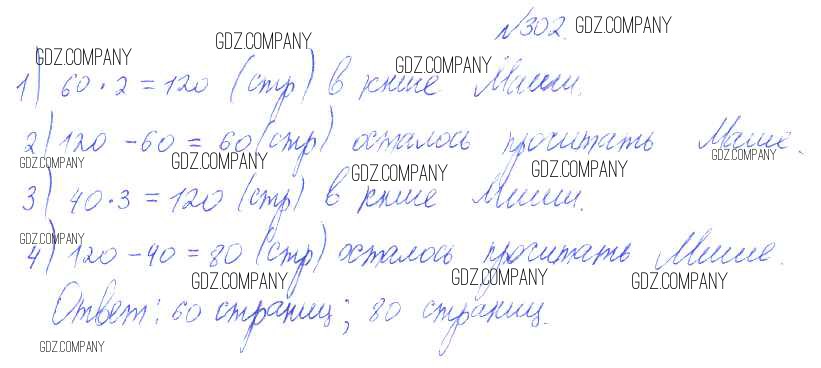 №302. GDZ.COMPANY
GDZ.COMPANY GDZ.COMPANY GDZ.COMPANY
1) 60 · 2 = 120 (стр) в книге Маши.
2) 120 - 60 = 60 (стр) осталось прочитать Маше.
GDZ.COMPANY GDZ.COMPANY GDZ.COMPANY GDZ.COMPANY GDZ.COMPANY
3) 40 · 3 = 120 (стр) в книге Миши.
GDZ.COMPANY
4) 120 - 40 = 80 (стр) осталось прочитать Мише.
GDZ.COMPANY GDZ.COMPANY GDZ.COMPANY
Ответ: 60 страниц; 80 страниц.
GDZ.COMPANY